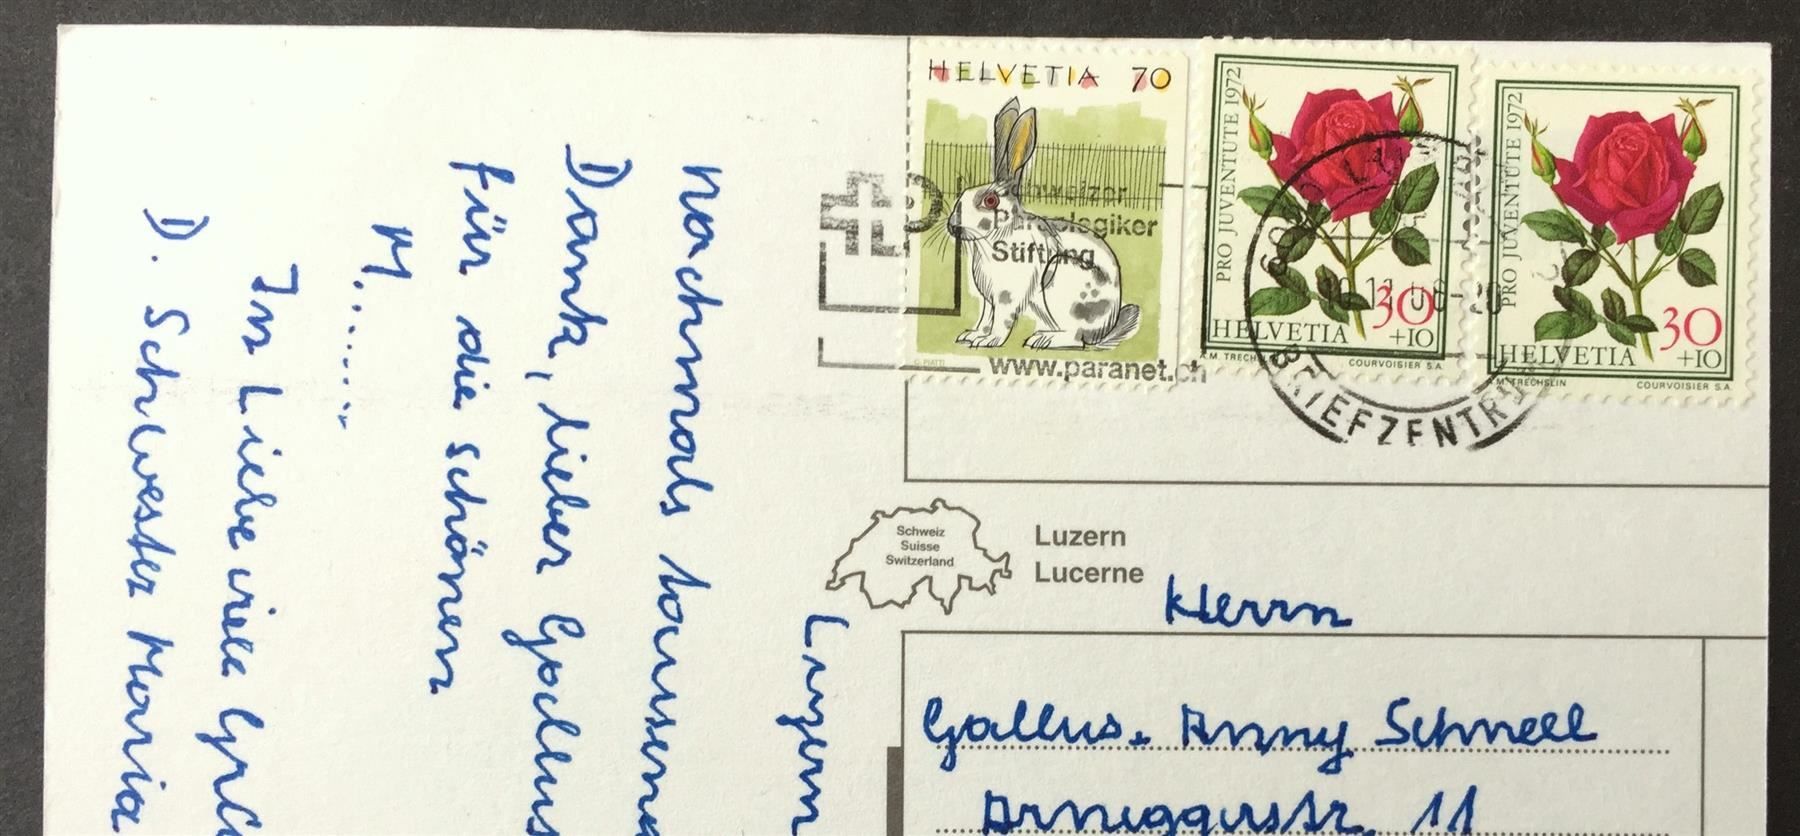 HELVETIA 70
C. PIATTI
PRO JUVENTUTE 1972
30
+10
HELVETIA
A.M. TRECHSLIN
COURVOISIER S.A.
PRO JUVENTUTE 1972
30
+10
HELVETIA
A.M. TRECHSLIN
COURVOISIER S.A.
Schweizer
Paraplegiker
Stiftung
www.paranet.ch
BRIEFZENTR
Schweiz
Suisse
Switzerland
Luzern
Lucerne
Herrn
Gallus. Anny Schnell
11
Luzern
nochmals tausend
Dank, lieber Gallus
für die schönen
M.......
In Liebe viele
D. Schwester Maria